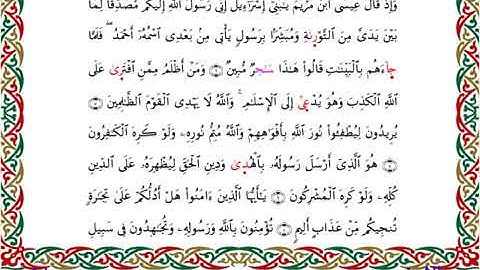 وَإِذْ قَالَ عِيسَى ٱبْنُ مَرْيَمَ يَٰبَنِىٓ إِسْرَٰٓءِيلَ إِنِّى رَسُولُ ٱللَّهِ إِلَيْكُم مُّصَدِّقًا لِّمَا
بَيْنَ يَدَىَّ مِنَ ٱلتَّوْرَىٰةِ وَمُبَشِّرًۢا بِرَسُولٍ يَأْتِى مِنۢ بَعْدِى ٱسْمُهُۥٓ أَحْمَدُ ۖ فَلَمَّا
جَآءَهُم بِٱلْبَيِّنَٰتِ قَالُوا۟ هَٰذَا سَٰحِرٌ مُّبِينٌ ۝ وَمَنْ أَظْلَمُ مِمَّنِ ٱفْتَرَىٰ عَلَى
ٱللَّهِ ٱلْكَذِبَ وَهُوَ يُدْعَىٰٓ إِلَى ٱلْإِسْلَٰمِ ۚ وَٱللَّهُ لَا يَهْدِى ٱلْقَوْمَ ٱلظَّٰلِمِينَ ۝
يُرِيدُونَ لِيُطْفِـُٔوا۟ نُورَ ٱللَّهِ بِأَفْوَٰهِهِمْ وَٱللَّهُ مُتِمُّ نُورِهِۦ وَلَوْ كَرِهَ ٱلْكَٰفِرُونَ
۝ هُوَ ٱلَّذِىٓ أَرْسَلَ رَسُولَهُۥ بِٱلْهُدَىٰ وَدِينِ ٱلْحَقِّ لِيُظْهِرَهُۥ عَلَى ٱلدِّينِ
كُلِّهِۦ وَلَوْ كَرِهَ ٱلْمُشْرِكُونَ ۝ يَٰٓأَيُّهَا ٱلَّذِينَ ءَامَنُوا۟ هَلْ أَدُلُّكُمْ عَلَىٰ تِجَٰرَةٍ
تُنجِيكُم مِّنْ عَذَابٍ أَلِيمٍ ۝ تُؤْمِنُونَ بِٱللَّهِ وَرَسُولِهِۦ وَتُجَٰهِدُونَ فِى سَبِيلِ